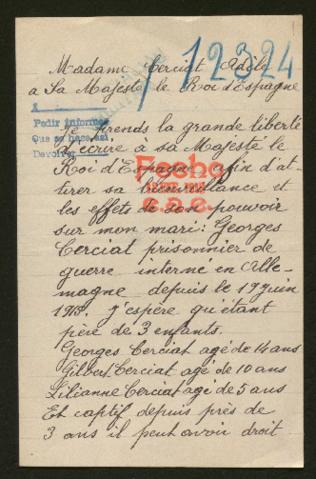 12324
Madame Cerciat Adèle
a Sa Majesté le Roi d'Espagne
Pedir informes
Que se hace así
Devolver
Je prends la grande liberté
d'écrire à sa Majesté le
Roi d'Espagne afin d'at-
tirer sa bienveillance et
les effets de son pouvoir
sur mon mari: Georges
Cerciat prisonnier de
guerre interné en Alle-
magne depuis le 17 juin
1915. J'espère qu'étant
père de 3 enfants.
Georges Cerciat agé de 14 ans
Gilbert Cerciat agé de 10 ans
Lilianne Cerciat agé de 5 ans
Et captif depuis près de
3 ans il peut avoir droit
Fecha